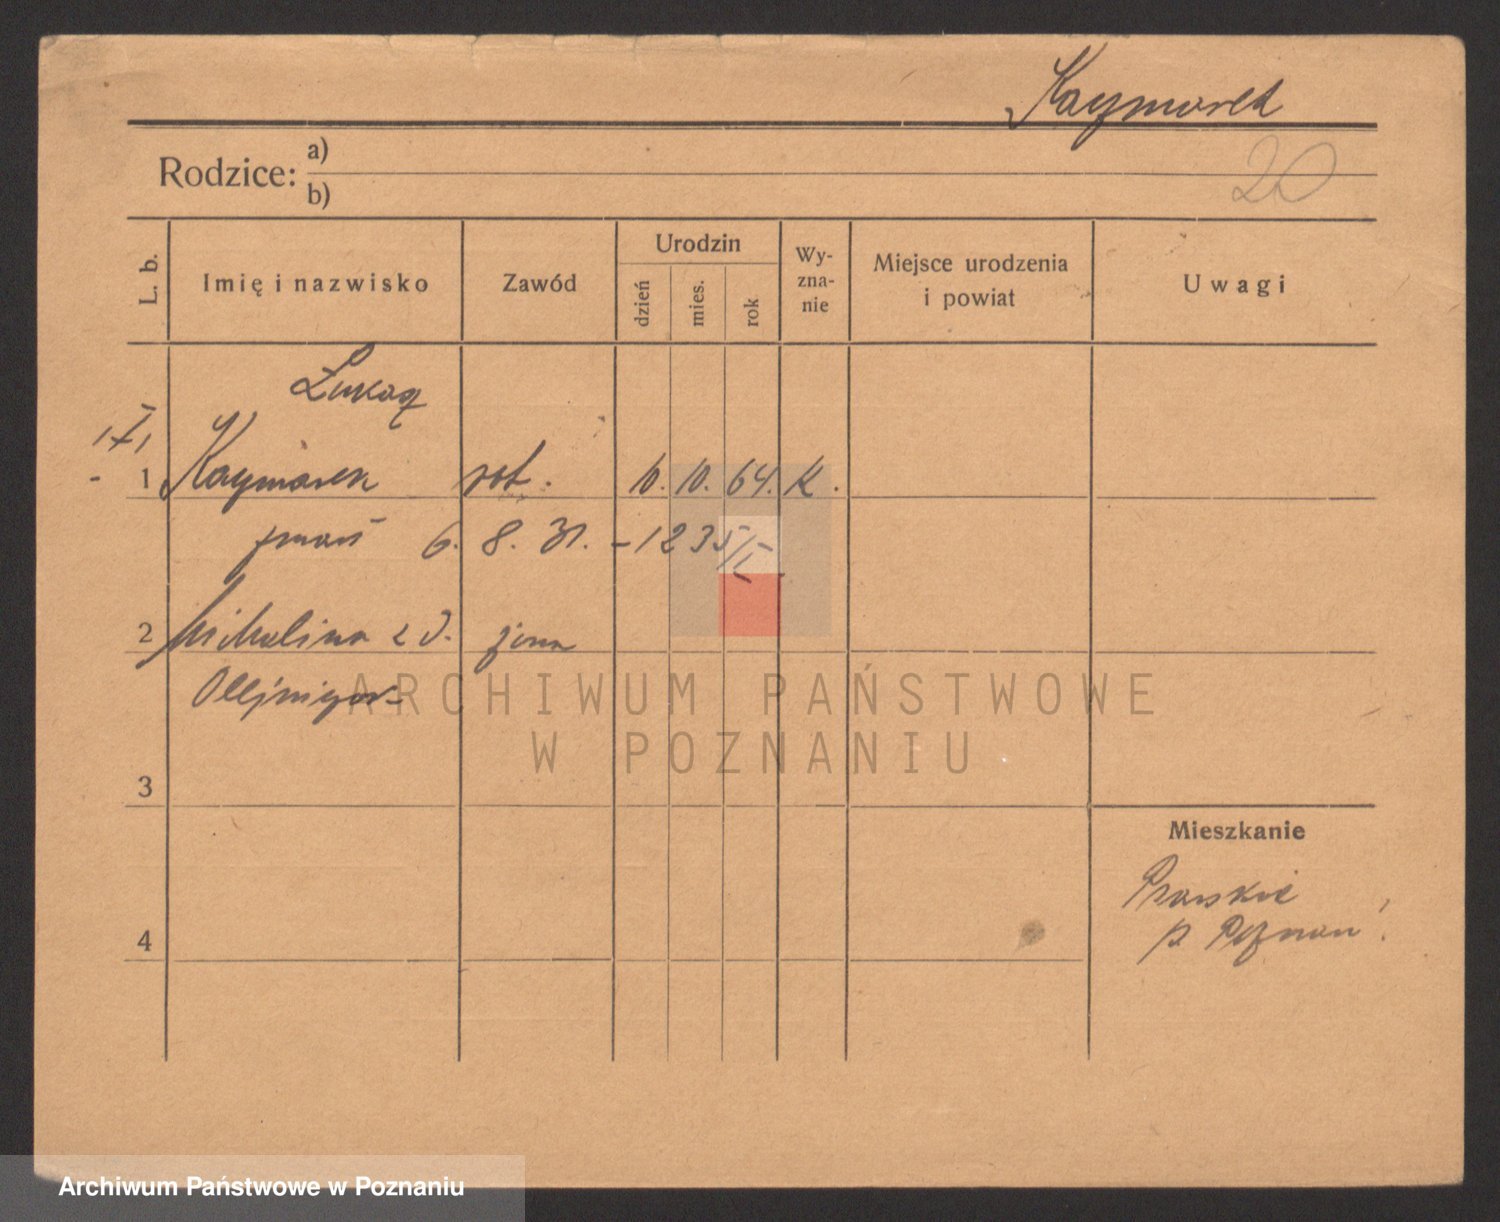 Kaczmarek
20
Rodzice: a)
b)
L. b.
Imię i nazwisko
Zawód
Urodzin
dzień
mies.
rok
Wy-
zna-
nie
Miejsce urodzenia
i powiat
Uwagi
Łukasz
1 Kaczmarek rob. 10. 10. 64. K.
zmarł 6. 8. 31. - 1235/
2 Michalina z d. żona
3
Mieszkanie
p. Poznań
4
ARCHIWUM PAŃSTWOWE
W POZNANIU
Archiwum Państwowe w Poznaniu